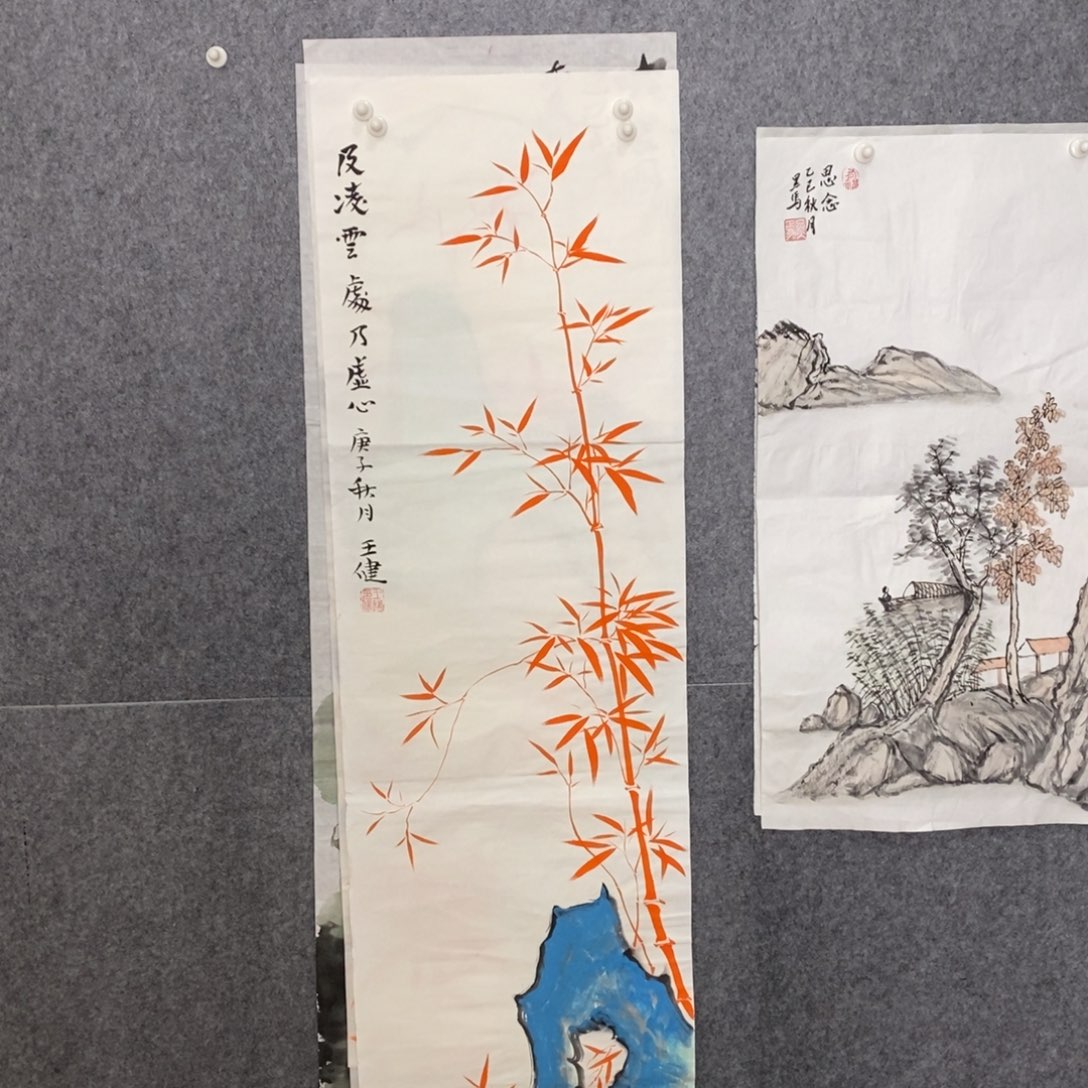 及凌雲處乃虛心 庚子秋月 王健
思念
乙巳秋月
墨馬